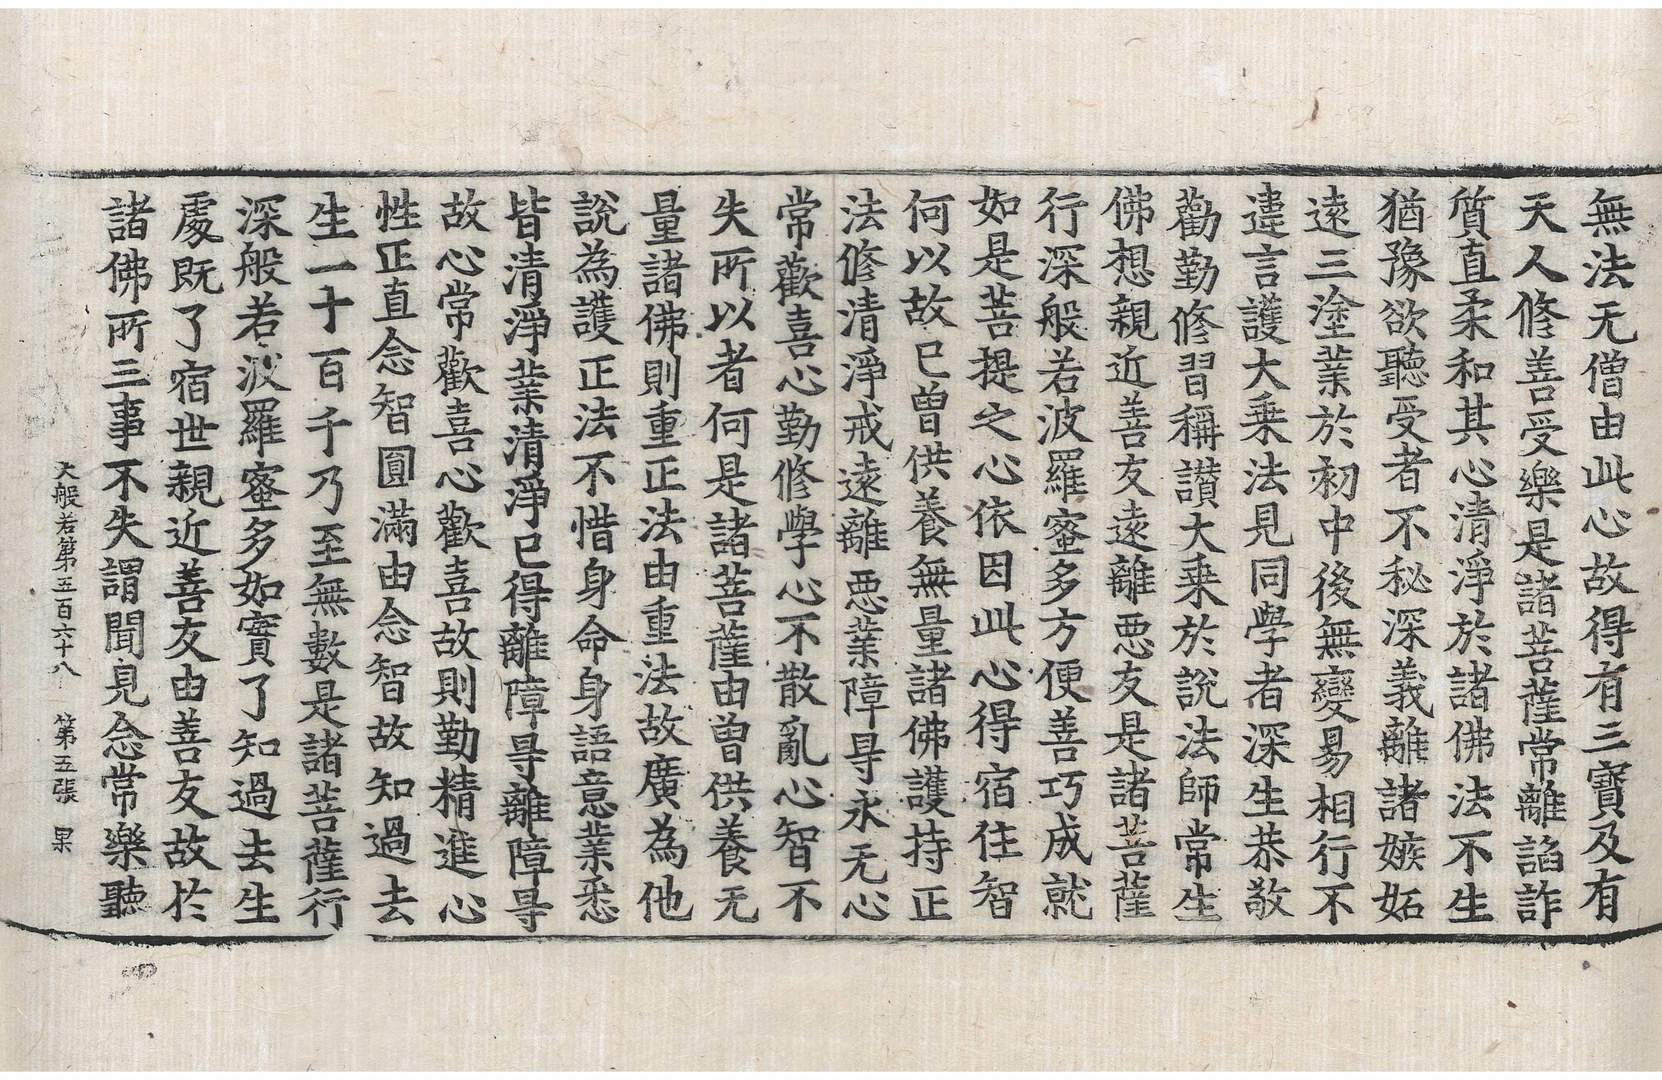 無法无僧由此心故得有三寶及有
天人修善受樂是諸菩薩常離諂詐
質直柔和其心清淨於諸佛法不生
猶豫欲聽受者不秘深義離諸嫉妬
遠三塗業於初中後無變易相行不
違言護大乗法見同學者深生恭敬
勸勤修習稱讃大乗於說法師常生
佛想親近善友遠離惡友是諸菩薩
行深般若波羅蜜多方便善巧成就
如是菩提之心依因此心得宿住智
何以故已曽供養無量諸佛護持正
法修清淨戒遠離惡業障㝵永无心
常歡喜心勤修學心不散亂心智不
失所以者何是諸菩薩由曽供養无
量諸佛則重正法由重法故廣為他
說為護正法不惜身命身語意業悉
皆清淨業清淨已得離障㝵離障㝵
故心常歡喜心歡喜故則勤精進心
性正直念智圎滿由念智故知過去
生一十百千乃至無數是諸菩薩行
深般若波羅蜜多如實了知過去生
處既了宿世親近善友由善友故於
諸佛所三事不失謂聞見念常樂聽
大般若第五百六十八 第五張 果